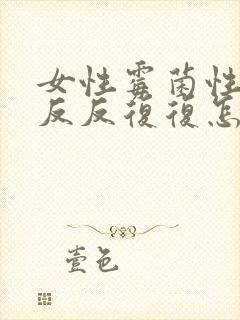 女性霉菌性
反反復復怎
壹色